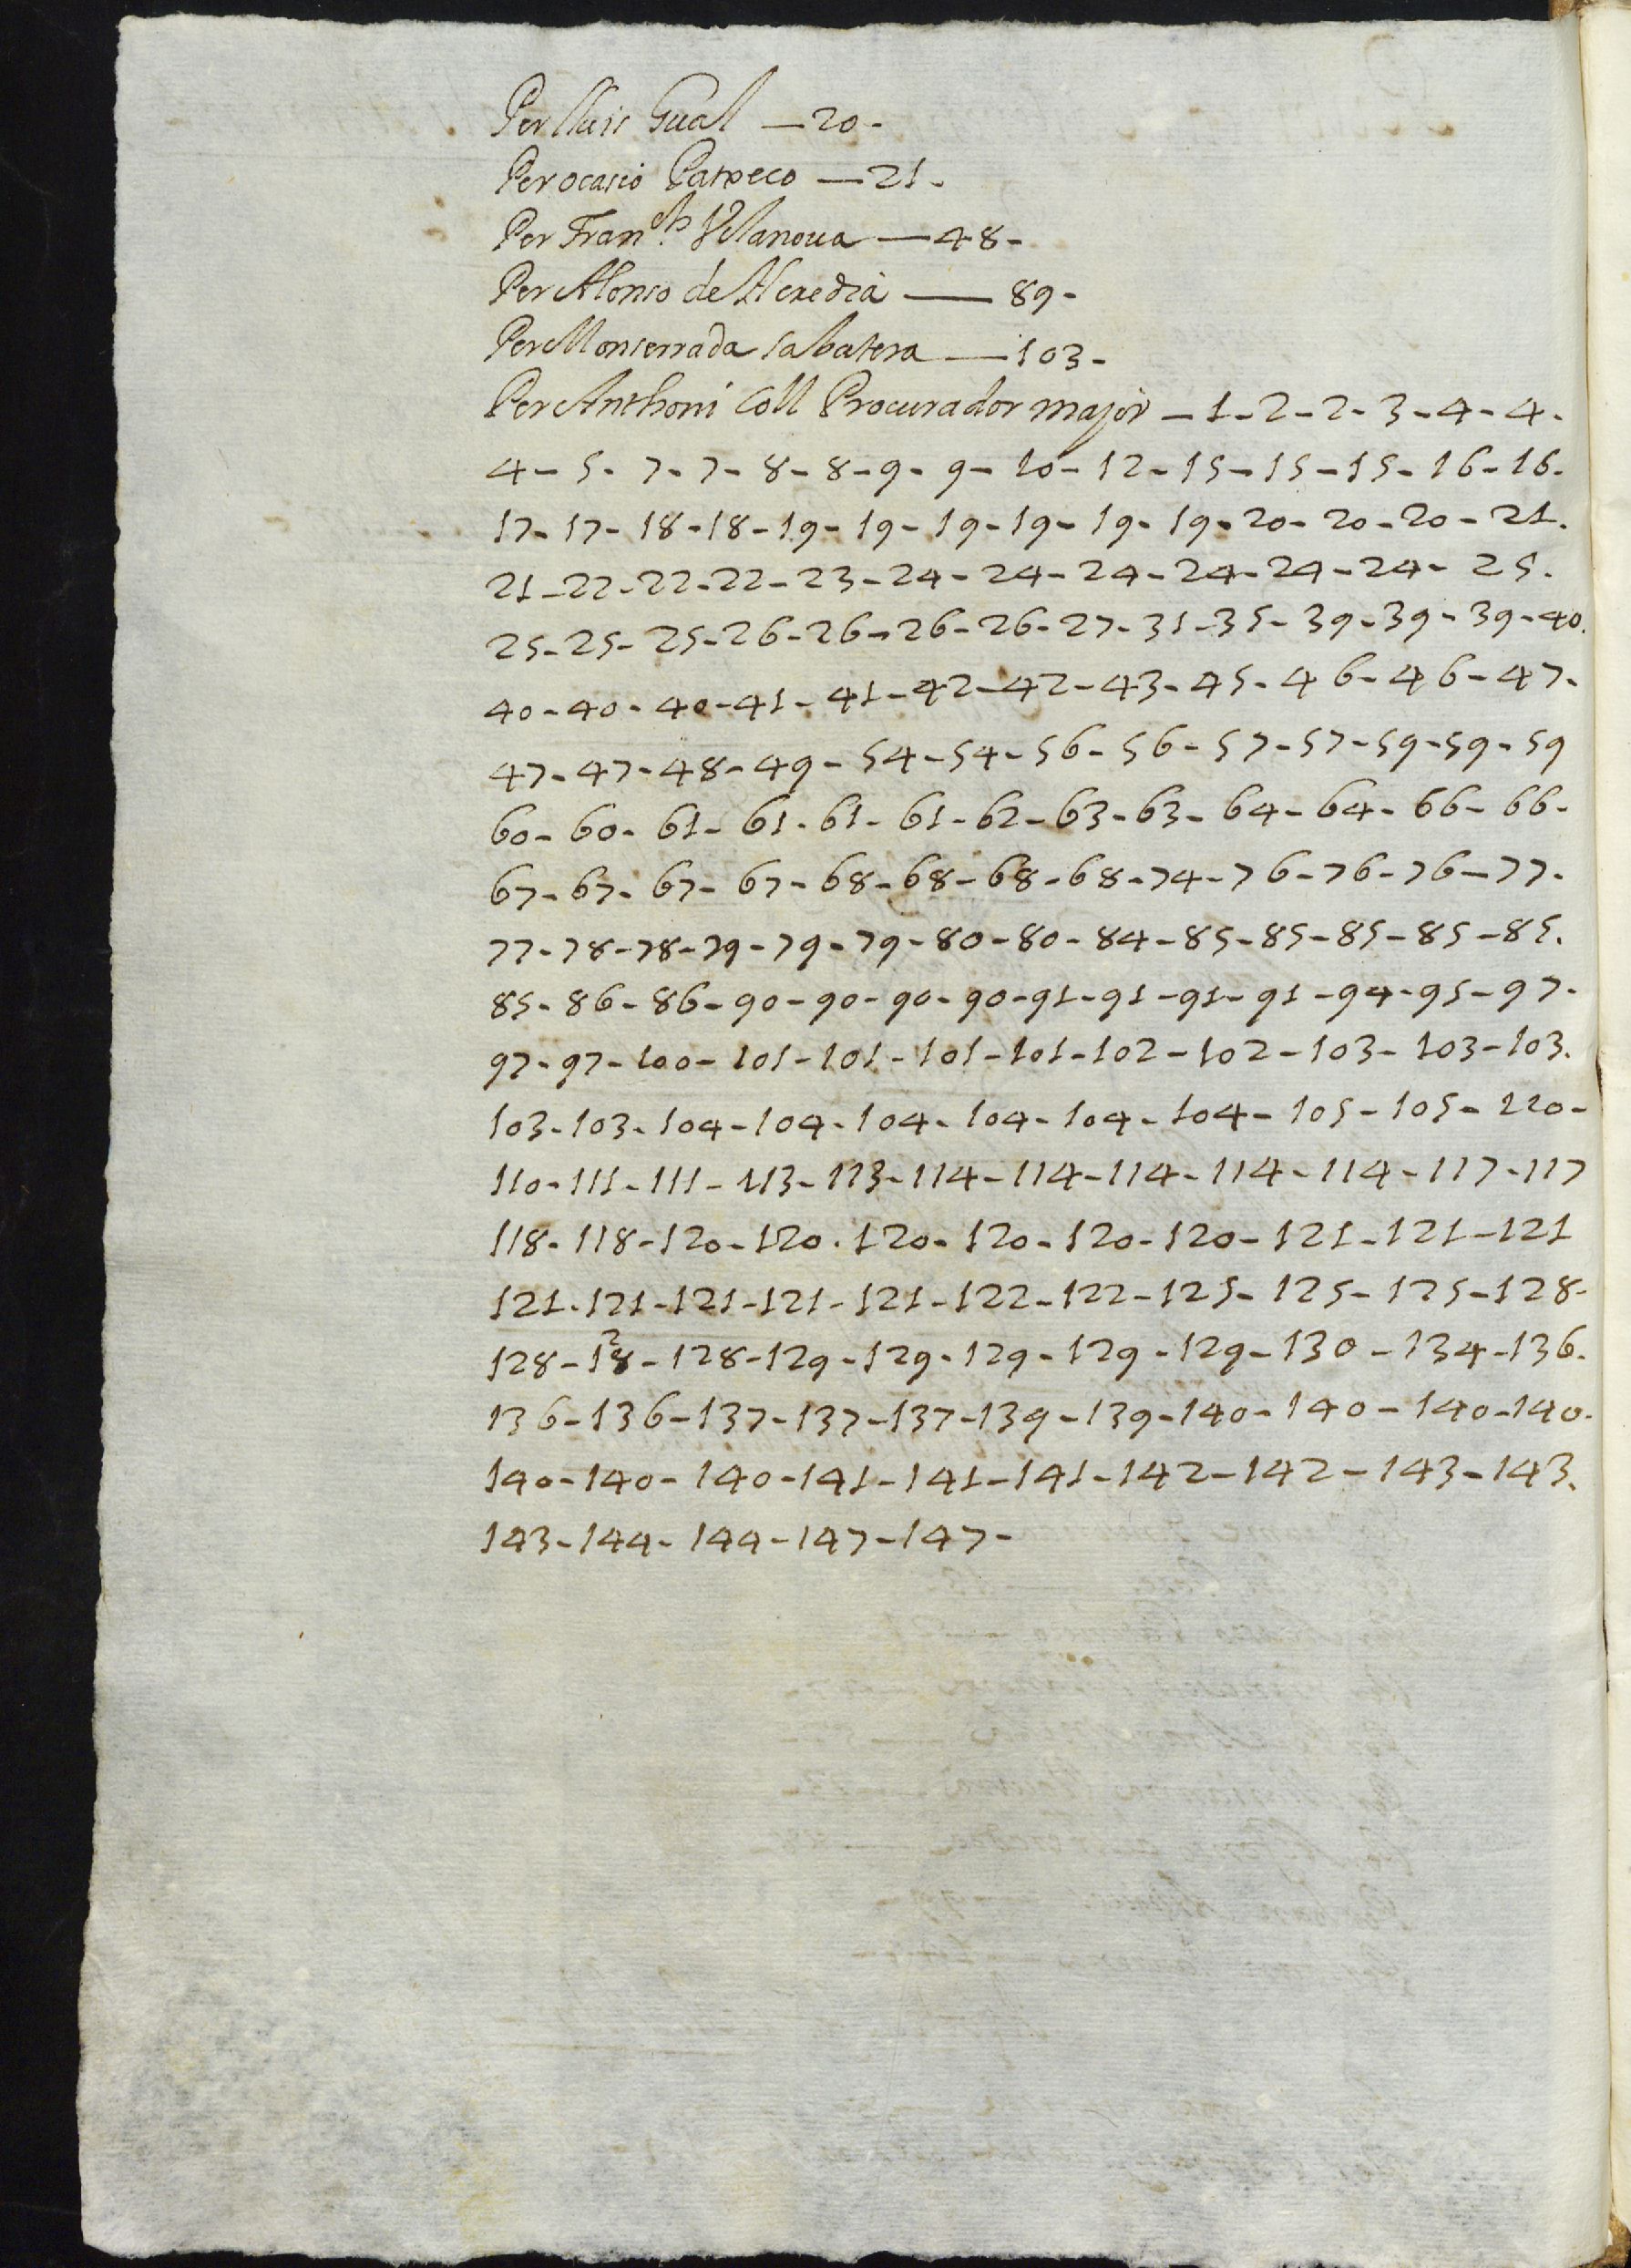 Per lluis Gual — 20 -
Per ocasio Patxeco — 21 -
Per Fran.ch Vilanoua — 48 -
Per Alonso de Heredia — 89 -
Per Monserrada sabatera — 103 -
Per Anthoni Coll Procurador major — 1 - 2 - 2 - 3 - 4 - 4 -
4 - 5 - 7 - 7 - 8 - 8 - 9 - 9 - 10 - 12 - 15 - 15 - 15 - 16 - 16 -
17 - 17 - 18 - 18 - 19 - 19 - 19 - 19 - 19 - 19 - 20 - 20 - 20 - 21 -
21 - 22 - 22 - 22 - 23 - 24 - 24 - 24 - 24 - 24 - 24 - 25 -
25 - 25 - 25 - 26 - 26 - 26 - 26 - 27 - 31 - 35 - 39 - 39 - 39 - 40 .
40 - 40 - 40 - 41 - 41 - 42 - 42 - 43 - 45 - 46 - 46 - 47 -
47 - 47 - 48 - 49 - 54 - 54 - 56 - 56 - 57 - 57 - 59 - 59 - 59
60 - 60 - 61 - 61 - 61 - 61 - 62 - 63 - 63 - 64 - 64 - 66 - 66 -
67 - 67 - 67 - 67 - 68 - 68 - 68 - 68 - 74 - 76 - 76 - 76 - 77 -
77 - 78 - 78 - 79 - 79 - 79 - 80 - 80 - 84 - 85 - 85 - 85 - 85 - 85 .
85 - 86 - 86 - 90 - 90 - 90 - 90 - 91 - 91 - 91 - 91 - 94 - 95 - 97 -
97 - 97 - 100 - 101 - 101 - 101 - 101 - 102 - 102 - 103 - 103 - 103 .
103 - 103 - 104 - 104 - 104 - 104 - 104 - 104 - 105 - 105 - 110 -
110 - 111 - 111 - 113 - 113 - 114 - 114 - 114 - 114 - 114 - 117 - 117
118 - 118 - 120 - 120 - 120 - 120 - 120 - 120 - 121 - 121 - 121
121 - 121 - 121 - 121 - 121 - 122 - 122 - 125 - 125 - 125 - 128 -
128 - 128 - 128 - 129 - 129 - 129 - 129 - 129 - 130 - 134 - 136 -
136 - 136 - 137 - 137 - 137 - 139 - 139 - 140 - 140 - 140 - 140 -
140 - 140 - 140 - 141 - 141 - 141 - 142 - 142 - 143 - 143 .
143 - 144 - 144 - 147 - 147 -